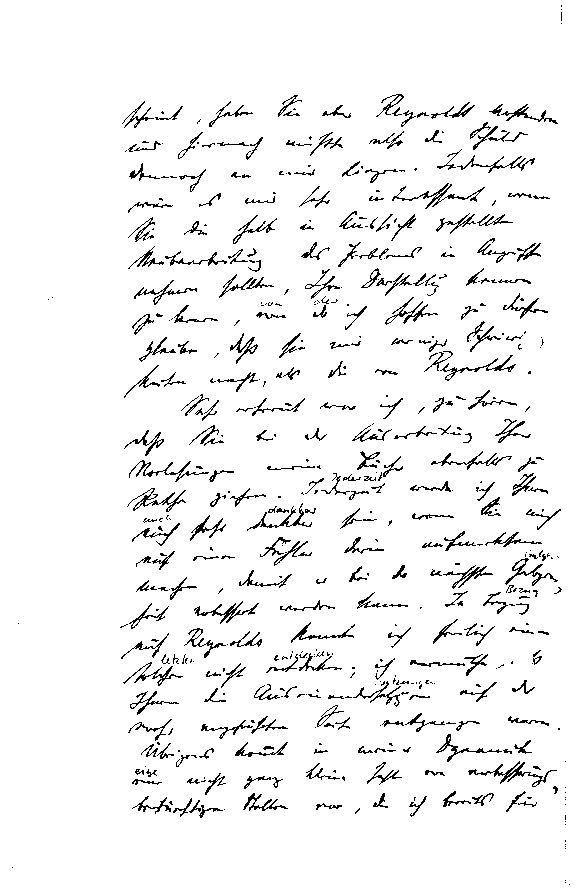 scheint, haben Sie aber Reynolds verstanden
und hiernach müßte also die Schuld
dennoch an mir liegen. Jedenfalls
wäre es mir sehr interessant, wenn
Sie die halb in Aussicht gestellte
Neubearbeitung des Problems in Angriff
nehmen sollten, Ihre Darstellung kennen
zu lernen, von der ich hoffen zu dürfen
glaube, daß sie mir weniger Schwierig-
keiten macht, als die von Reynolds.
Sehr erfreut war ich, zu hören,
daß Sie bei der Ausarbeitung Ihrer
Vorlesungen meine Bücher ebenfalls zu
Rathe ziehen. Jederzeit werde ich Ihnen
auch sehr dankbar sein, wenn Sie mich
auf einen Fehler darin aufmerksam
machen, damit er bei der nächsten Gelegen-
heit verbessert werden kann. In Bezug
auf Reynolds konnte ich freilich einen
solchen nicht entdecken; ich vermuthe,
Ihnen die Auseinandersetzungen auf der
angeführten Seite entgangen waren.
Übrigens kommt in meiner Dynamik
eine nicht ganz kleine Zahl von verbesserungs-
bedürftigen Stellen vor, die ich bereits für